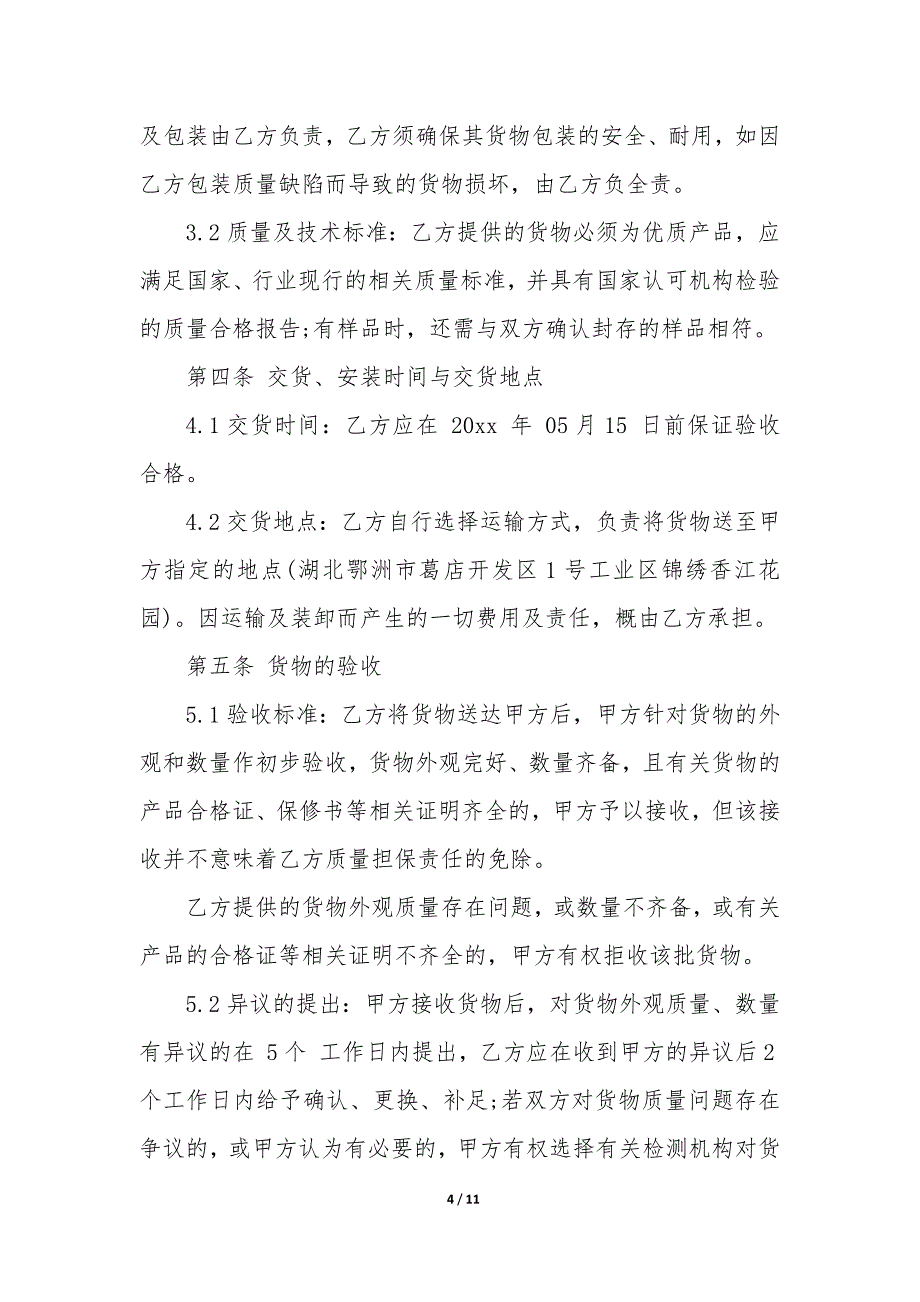 及包装由乙方负责，乙方须确保其货物包装的安全、耐用，如因
乙方包装质量缺陷而导致的货物损坏，由乙方负全责。
3.2 质量及技术标准：乙方提供的货物必须为优质产品，应
满足国家、行业现行的相关质量标准，并具有国家认可机构检验
的质量合格报告;有样品时，还需与双方确认封存的样品相符。
第四条 交货、安装时间与交货地点
4.1 交货时间：乙方应在 20xx 年 05 月 15 日前保证验收
合格。
4.2 交货地点：乙方自行选择运输方式，负责将货物送至甲
方指定的地点(湖北鄂洲市葛店开发区 1 号工业区锦绣香江花
园)。因运输及装卸而产生的一切费用及责任，概由乙方承担。
第五条 货物的验收
5.1 验收标准：乙方将货物送达甲方后，甲方针对货物的外
观和数量作初步验收，货物外观完好、数量齐备，且有关货物的
产品合格证、保修书等相关证明齐全的，甲方予以接收，但该接
收并不意味着乙方质量担保责任的免除。
乙方提供的货物外观质量存在问题，或数量不齐备，或有关
产品的合格证等相关证明不齐全的，甲方有权拒收该批货物。
5.2 异议的提出：甲方接收货物后，对货物外观质量、数量
有异议的在 5 个 工作日内提出，乙方应在收到甲方的异议后 2
个工作日内给予确认、更换、补足;若双方对货物质量问题存在
争议的，或甲方认为有必要的，甲方有权选择有关检测机构对货
4 / 11